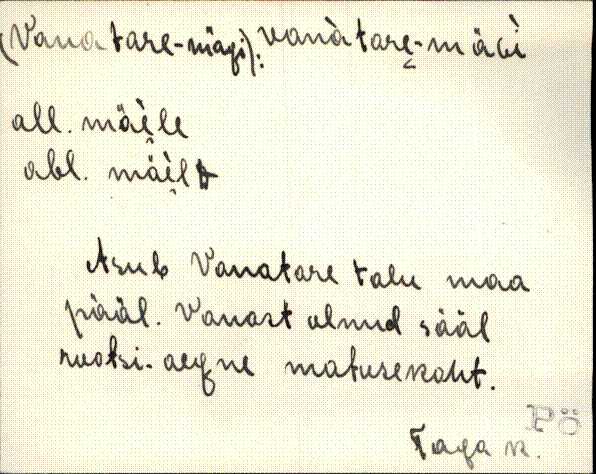 (Vanatare-mägi): vanàtare̬-mäɢì
all. mäi̬le
abl. mäi̬lt
Asub Vanatare talu maa
pääl. Vanast olnud sääl
ruotsi-aegne matusekoht.
Pö
Taga k.